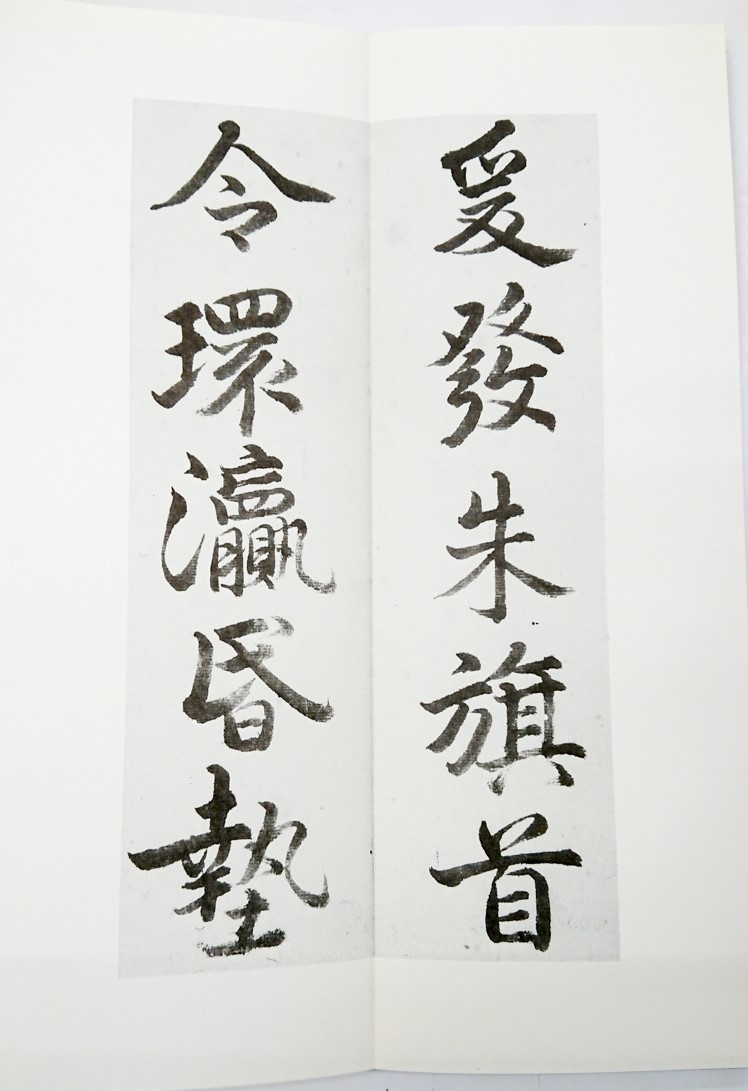 爰發朱旗首
令環瀛昏墊